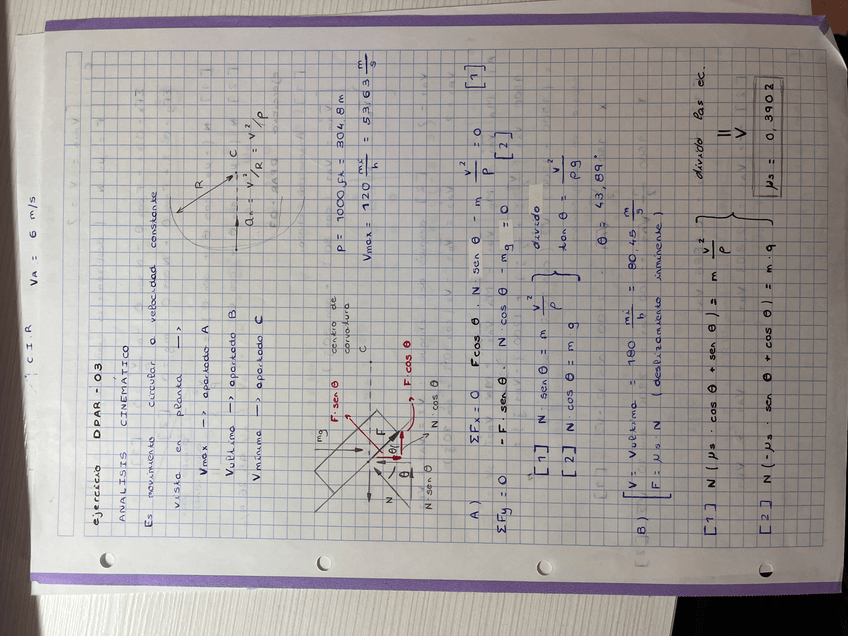 C.I.R VA = 6 m/s
ejercicio DPAR - 03
ANALISIS CINEMÁTICO
Es movimiento circular a velocidad constante
vista en planta —>
Vmax —> apartado A
Vultima —> apartado B
Vmínima —> apartado C
R
C
an = v²/R = v²/ρ
mg
F·sen θ
centro de curvatura
C
F
θ
N
θ
F·cos θ
N·sen θ
N·cos θ
ρ = 1000 ft = 304,8 m
Vmax = 120 mi/h = 53,63 m/s
A) ΣFx = 0 F cos θ · N · sen θ - m v²/ρ = 0 [1]
ΣFy = 0 - F·sen θ · N · cos θ - mg = 0 [2]
[1] N sen θ = m v²/ρ
[2] N · cos θ = m · g
divido
tan θ = v²/ρg
θ = 43,89°
B) V = Vultima = 180 mi/h = 80,45 m/s
F = μs · N (deslizamiento inminente)
[1] N (μs · cos θ + sen θ) = m v²/ρ
[2] N (-μs · sen θ + cos θ) = m · g
divido las ec.
μs = 0,3902